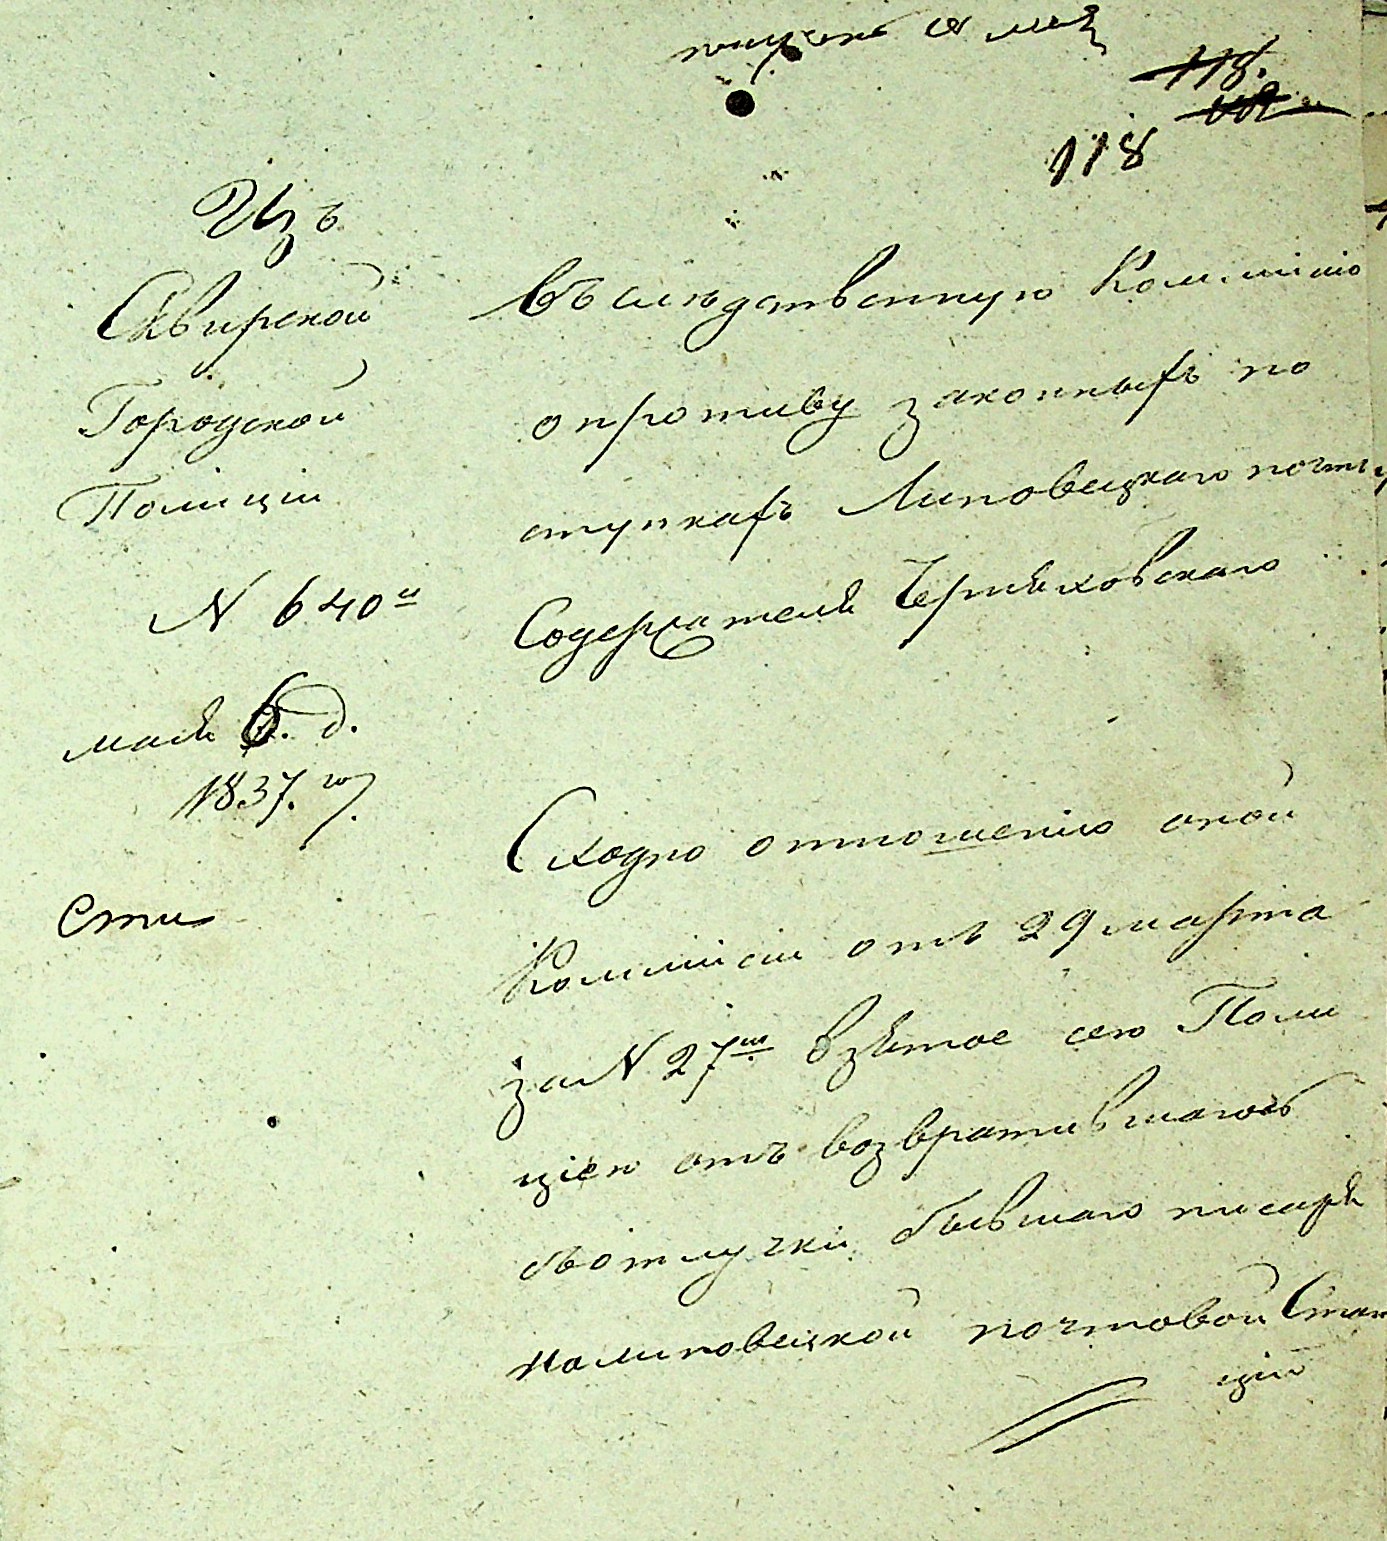 получено 8 мая
118.
118
Изъ
Сквирской
Городской
Полиціи
N 640й
мая 6. д.
1837. го г.
Въ слѣдственную Коммисію
о противу законныхъ по
ступкахъ Липовецкаго почт
Содержателя Черняховскаго
Сходно отношенію оной
Коммисіи отъ 29 марта
за N 27м взятое сею Поли
ціею отъ возвратившагось
съ отлучки бывшаго писаря
на липовецкой почтовой Стан
ціи